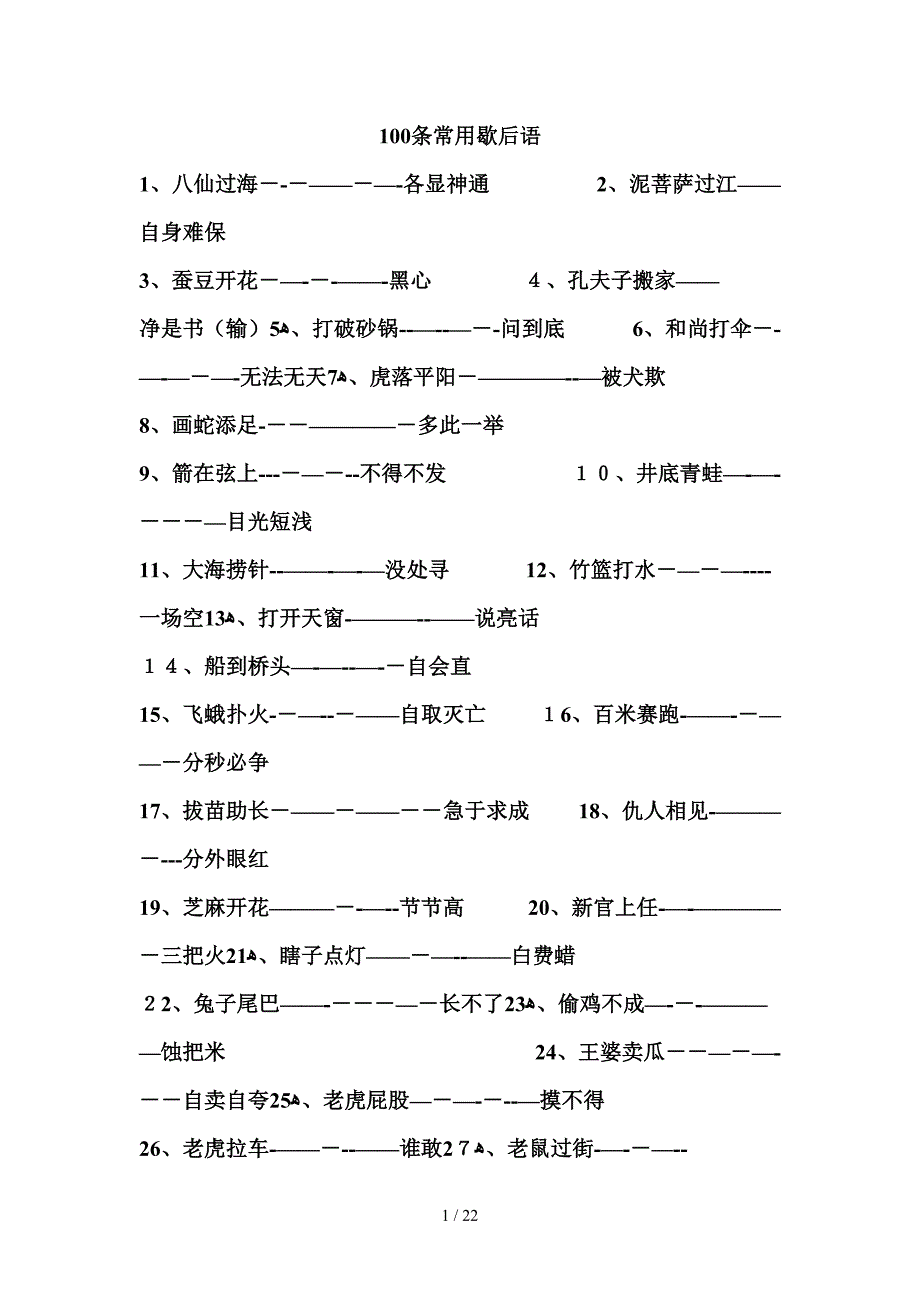 100条常用歇后语
1、八仙过海－-－——－—-各显神通 2、泥菩萨过江——
自身难保
3、蚕豆开花－—-－-——-黑心 ４、孔夫子搬家——
净是书（输）5ﻫ、打破砂锅--—--—－-问到底 6、和尚打伞－-
—-—－—-无法无天7ﻫ、虎落平阳－————--—被犬欺
8、画蛇添足-－－————－多此一举
9、箭在弦上---－—－--不得不发 １０、井底青蛙—-—-
－－－—目光短浅
11、大海捞针--———-—-—没处寻 12、竹篮打水－—－—----
一场空13ﻫ、打开天窗-———--——说亮话
１４、船到桥头—-—--—-－自会直
15、飞蛾扑火-－—--－——自取灭亡 １6、百米赛跑-——-－—
—－分秒必争
17、拔苗助长－——－——－－急于求成 18、仇人相见-———
－---分外眼红
19、芝麻开花———－-—--节节高 20、新官上任-—-————
－三把火21ﻫ、瞎子点灯——－—--——白费蜡
２2、兔子尾巴——-－－－—－长不了23ﻫ、偷鸡不成—-－-———
—蚀把米 24、王婆卖瓜－－—－—-
－－自卖自夸25ﻫ、老虎屁股—－—-－--—摸不得
26、老虎拉车-——－--——谁敢2７ﻫ、老鼠过街-—-－—--
1 / 22